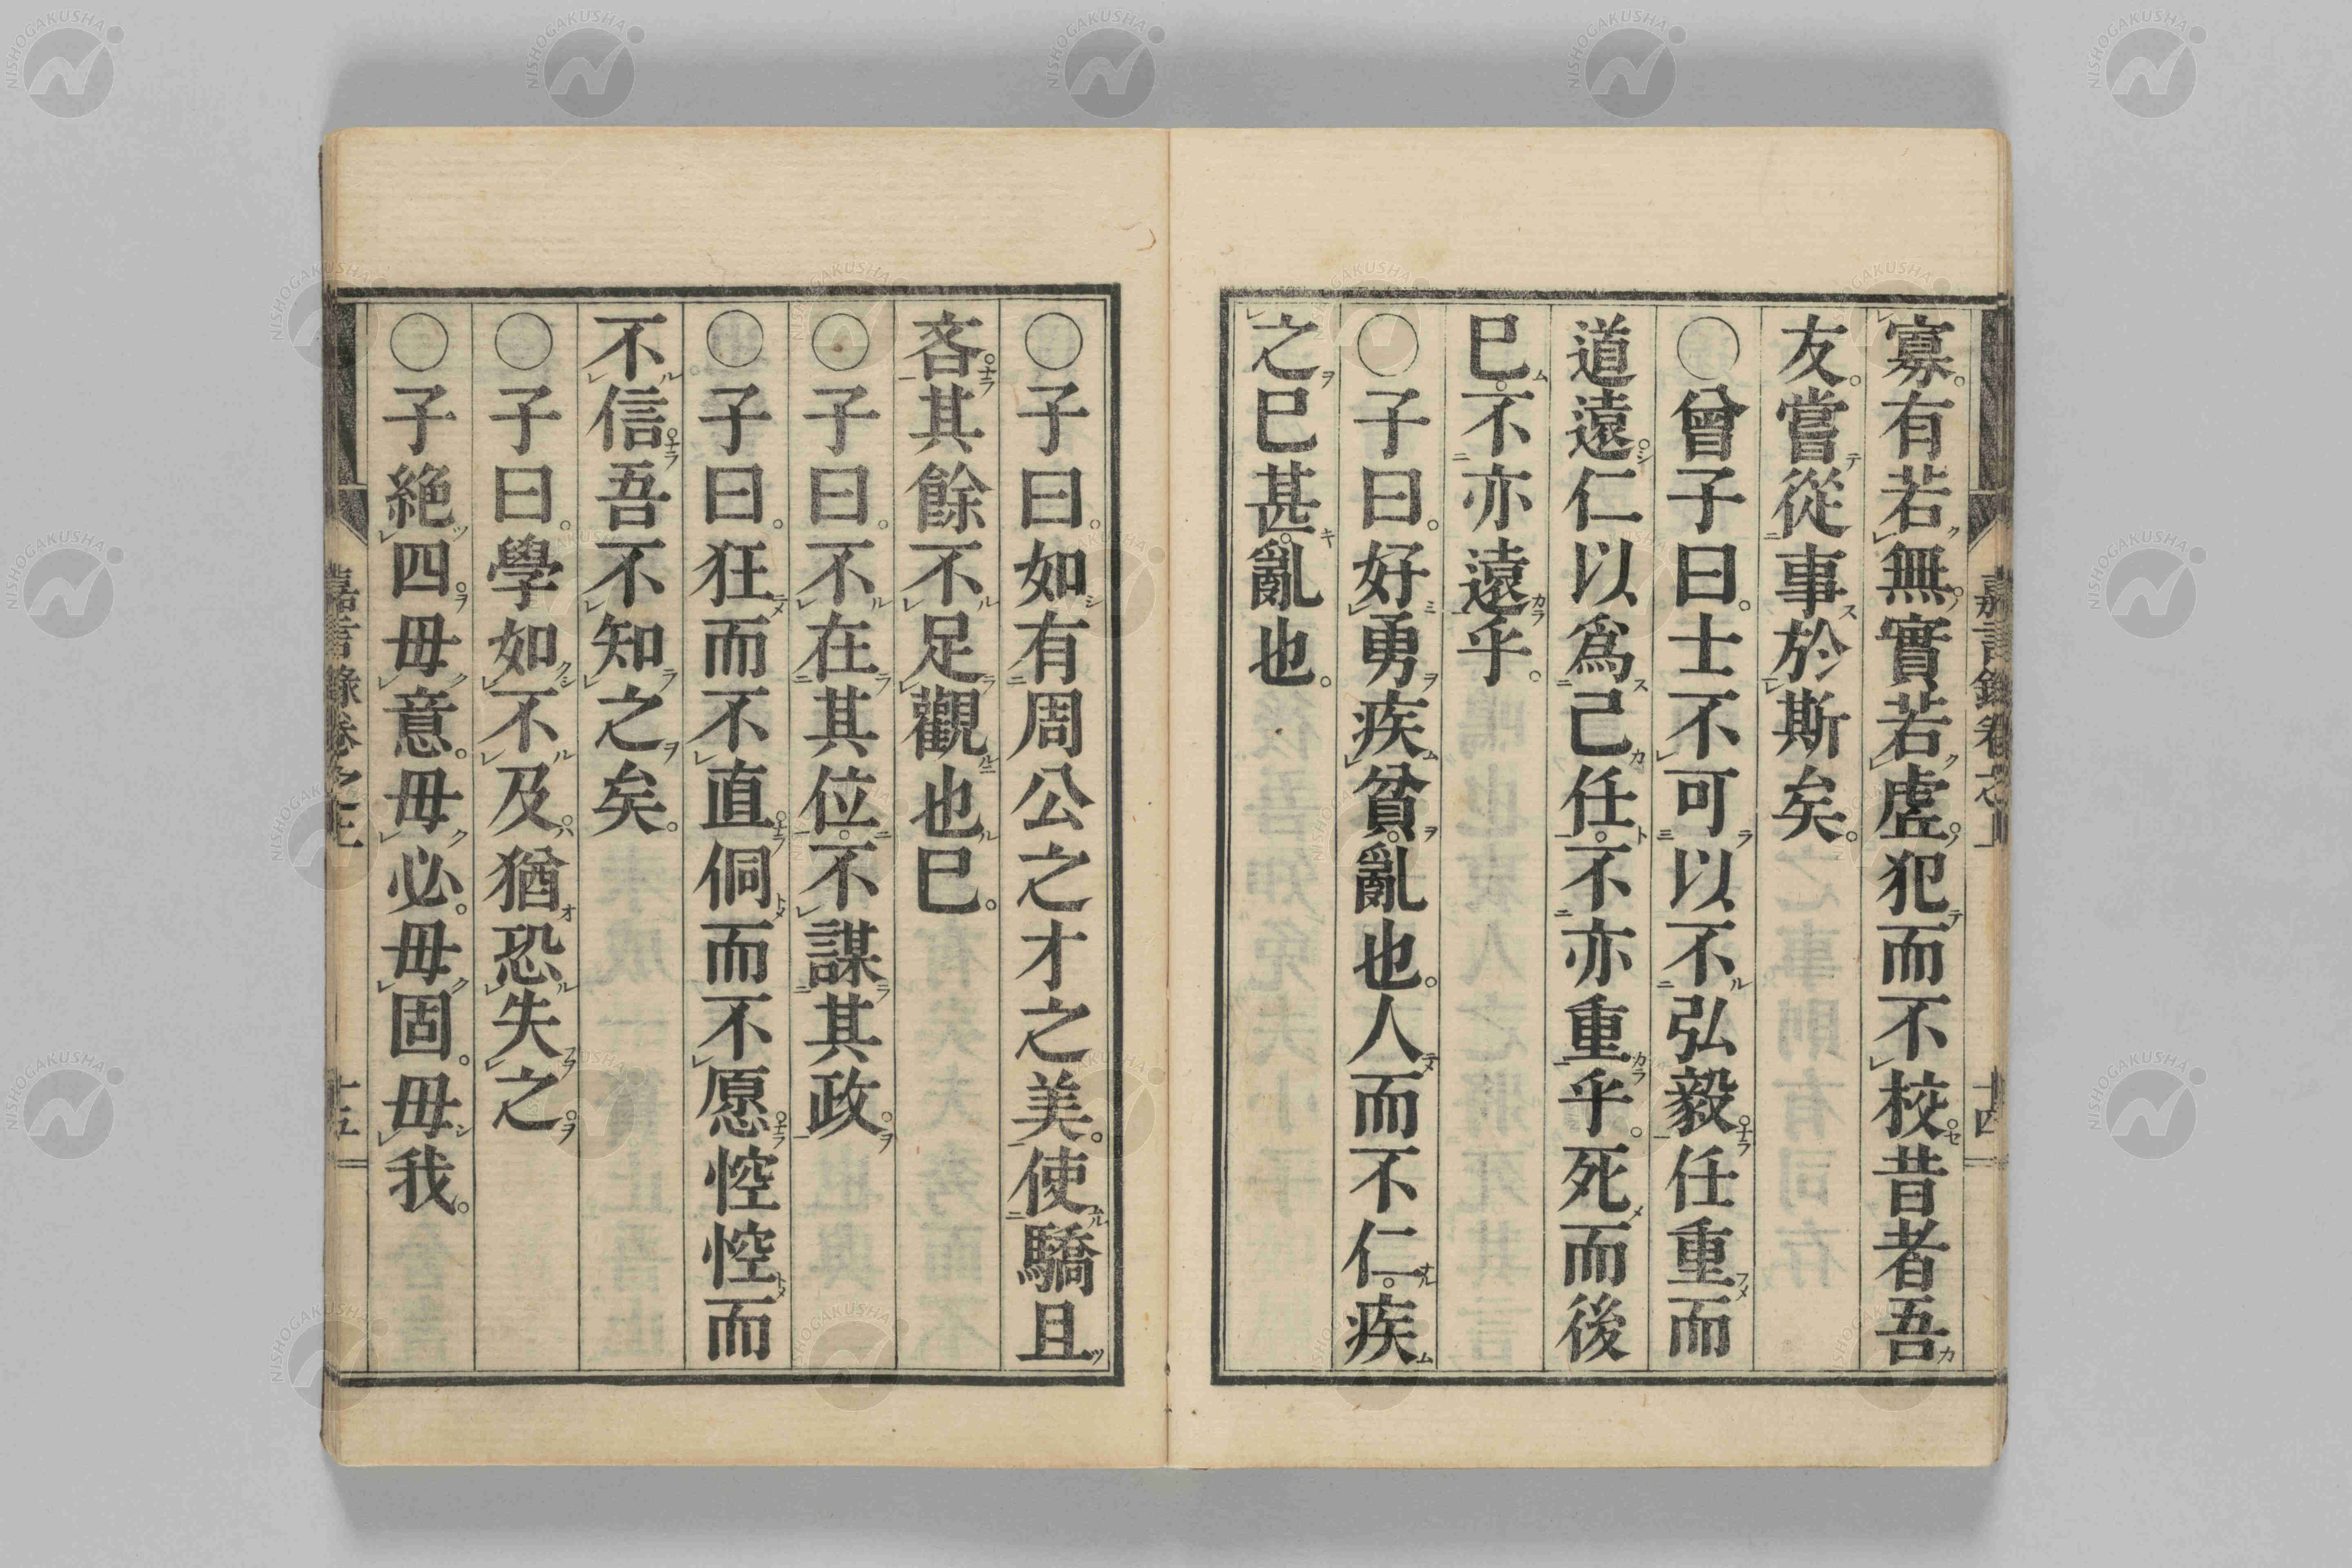 寡。有若無。實若虛。犯而不校。昔者吾
友。嘗從事於斯矣。
○曾子曰。士不可以不弘毅。任重而
道遠。仁以爲己任。不亦重乎。死而後
已。不亦遠乎。
○子曰。好勇疾貧。亂也。人而不仁。疾
之已甚。亂也。
○子曰。如有周公之才之美。使驕且
吝。其餘不足觀也已。
○子曰。不在其位。不謀其政。
○子曰。狂而不直。侗而不愿。悾悾而
不信。吾不知之矣。
○子曰。學如不及。猶恐失之。
○子絕四。毋意。毋必。毋固。毋我。
嘉言錄卷之上
十四
十五
NISHOGAKUSHA